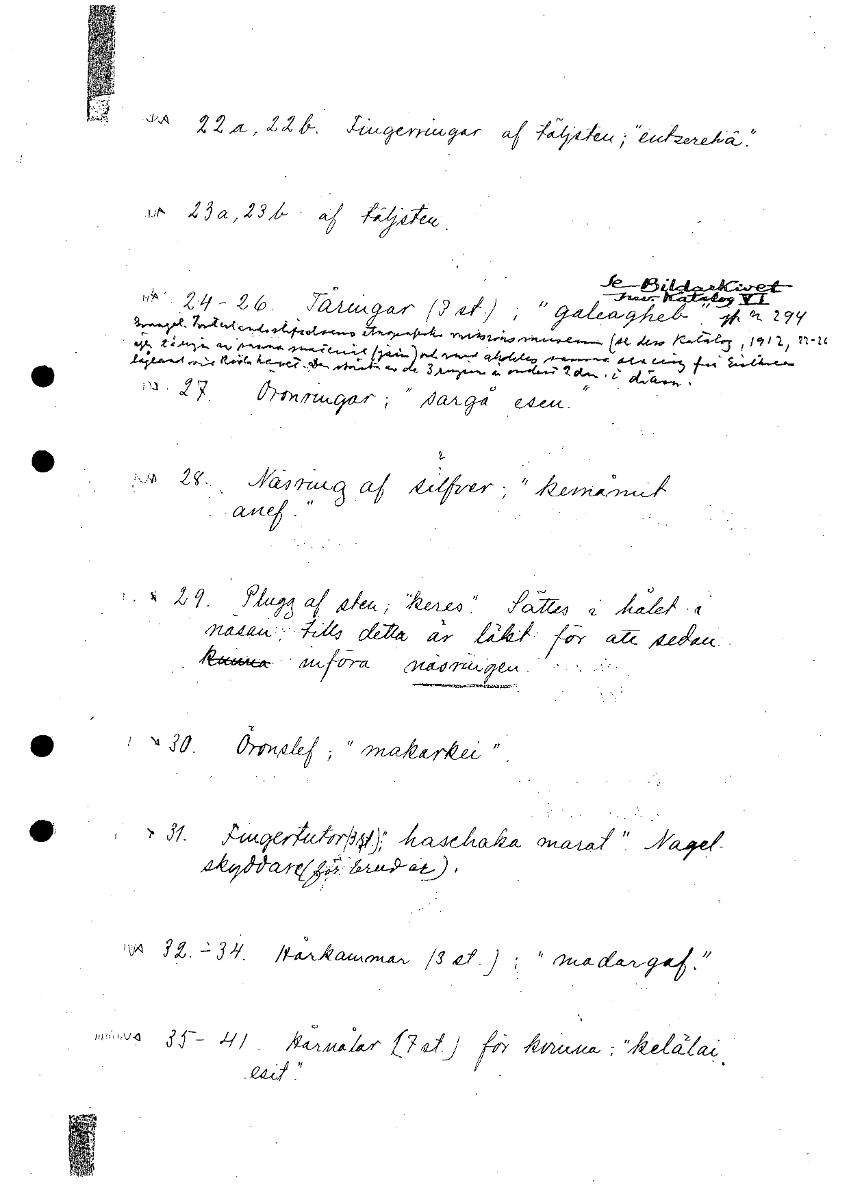 22a, 22b. Fingerringar af täljsten; "entzerehâ."
23a, 23b af täljsten.
Se Bildarkivet
Inv. Katalog VI
24-26. Tåringar (3 st); "galeagheb" n 294
museum (se dess Katalog, 1912, 22-26
äga tåringar av samma material (järn)
i diam.
27 Öronringar; "sargå esen."
?
28. Näsring af silfver; "kemâmit
anef."
29. Plugg af sten; "keres". Sättes i hålet i
näsan, tills detta är läkt för att sedan
kunna införa näsringen.
30. Öronslef; "makarkei".
31. Fingertutor (3 st); "haschaka marat". Nagel-
skyddare (för brudar).
32.-34. Hårkammar (3 st.); "madargaf."
35-41. Hårnålar (7 st.) för kvinna; "kelâlai
esit."